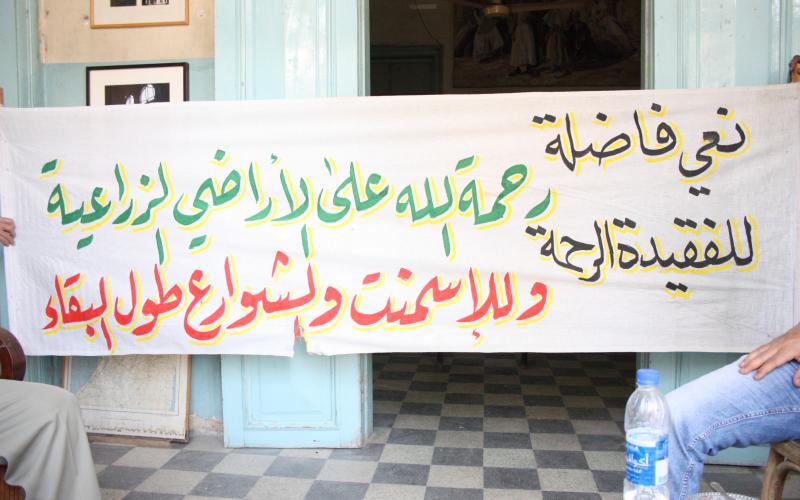 نعي فاضلة
للفقيدة الرحمة
رحمة الله على الأراضي الزراعية
وللإسمنت والشوارع طول البقاء